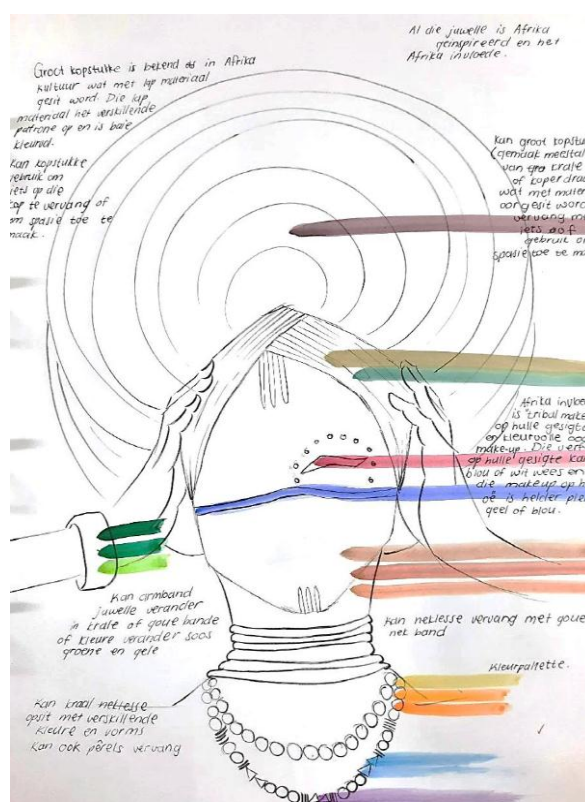 Al die juwelle is Afrika
geinspireerd en het
Afrika invloede.
Groot kopstukke is bekend in Afrika
kultuur wat met lap materiaal
gesit word. Die lap
materiaal het verskillende
patrone op en is baie
kleurvol.
Kan kopstukke
gebruik om
iets op die
kop te vervang of
om spasie toe te
maak.
Kan groot kopstu
(gemaak meestal
van krale
of koperdraa
wat met mater
oorgesit word
vervang m
iets of
gebruik o
spasie toe te ma
Afrika invloe
is "tribal make
op hulle gesigte
en kleurvolle oog
make-up. Die verf
op hulle gesigte ka
blou of wit wees en
die makeup op h
oë is helder
geel of blou.
Kan armband
juwelle verander
in krale of goue bande
of kleure verander soos
groene en gele
Kan neklesse vervang met goue
nek band
Kleurpalette.
Kan kraal neklesse
opsit met verskillende
kleure en vorms
kan ook pêrels vervang